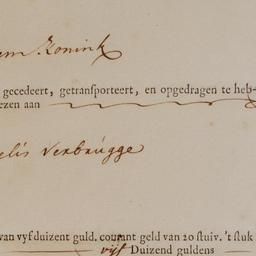 em Konink
gecedeert, getransporteert, en opgedragen te heb-
ezen aan
elis Verbrugge
van vyf duizent guld. courant geld van 20 stuiv. 't stuk
vijf Duizend guldens